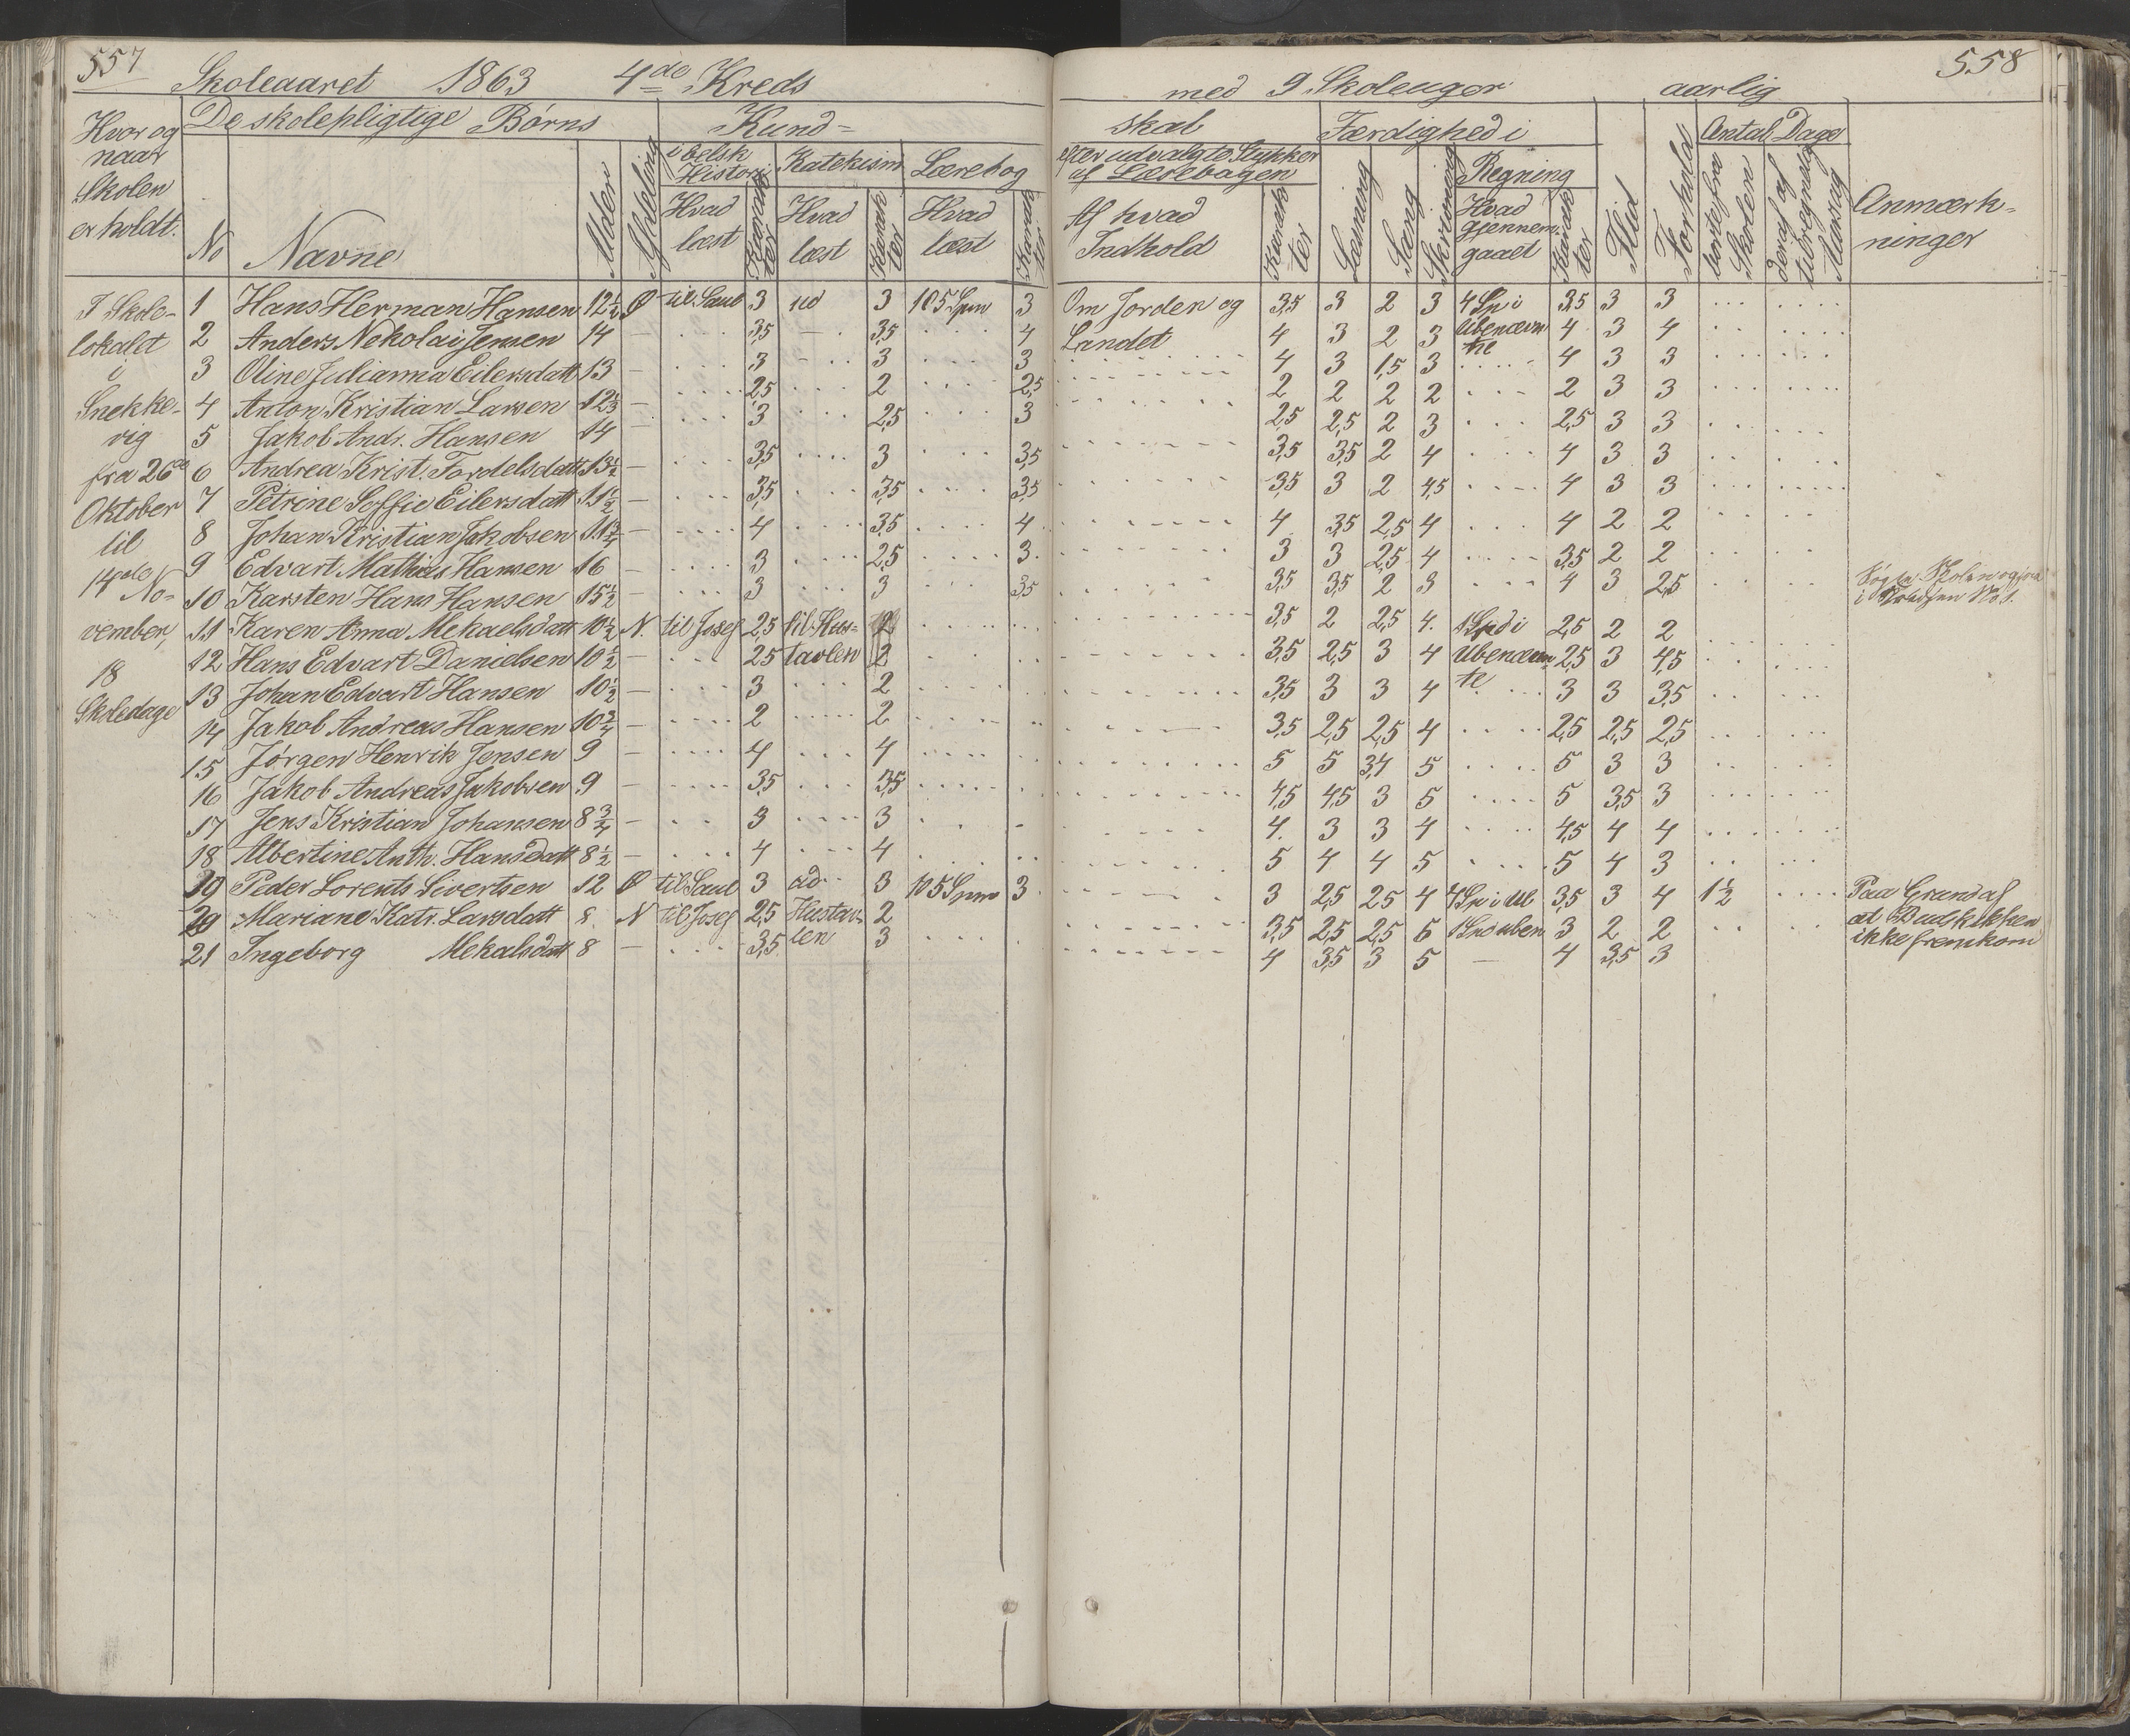 557
Skoleaaret 1863 4de Kreds
Hvor og naar Skolen er holdt.
De skolepligtige Børns
No
Navne
Alder
Afdeling
Kund-
i belsk Historie
Hvad læst
Karakter
Katekism
Hvad læst
Karakter
Lærebog
Hvad læst
Karakter
I Skole-
lokalet
i
Snekke-
vig
fra 26de
Oktober
til
14de No-
vember,
18
Skoledage
1 Hans Herman Hansen 12½ Ø til Saul 3 ud 3 105 Spm 3
2 Anders Nekolai Jensen 14 — 3,5 — 3,5 4
3 Oline Julianna Eilersdatt 13 — 3 3 3
4 Anton Kristian Larsen 12⅔ — 2,5 2 2,5
5 Jakob Andr. Hansen 14 — 3 2,5 3
6 Andrea Krist. Tordelsdatt 13½ — 3,5 3 3,5
7 Petrine Soffie Eilersdatt 11½ — 3,5 3,5 3,5
8 Johan Kristian Jakobsen 11¾ — 4 3,5 4
9 Edvart Mathias Hansen 16 — 3 2,5 3
10 Karsten Hans Hansen 15½ — 3 3 3,5
11 Karen Anna Mekaelsdatt 10½ N. til Josef 2,5 til Hus- 2
12 Hans Edvart Danielsen 10½ — 2,5 tavlen 2
13 Johan Edvart Hansen 10½ — 3 2
14 Jakob Andreas Hansen 10¾ — 2 2
15 Jørgen Henrik Jensen 9 — 4 4
16 Jakob Andreas Jakobsen 9 — 3,5 3,5
17 Jens Kristian Johansen 8¾ — 3 3
18 Albertine Anth. Hansdatt 8½ — 4 4
19 Peder Lorents Sivertsen 12 Ø til Saul 3 ud 3 105 Spm 3
20 Mariane Katr. Larsdatt 8 N til Josef 2,5 Hustav- 2
21 Ingeborg Mekalsdatt 8 — 3,5 len 3
558
med 9 Skoleuger aarlig
skab
efter udvalgte Stykker
af Læsebogen
Af hvad Indhold
Karakter
Færdighed i
Læsning
Sang
Skrivning
Regning
Hvad gjennemgaaet
Karakter
Flid
Forhold
Antal Dage
borte fra Skolen
deraf af
Aarsag
Anmærk-
ninger
Om Jorden og 3,5 3 2 3 4 Sp i 3,5 3 3
Landet 4 3 2 3 Ubenævn 4 3 4
4 3 1,5 3 te 4 3 3
2 2 2 2 2 3 3
2,5 2,5 2 3 2,5 3 3
3,5 3,5 2 4 4 3 3
3,5 3 2 4,5 4 3 3
4 3,5 2,5 4 4 2 2
3 3 2,5 4 3,5 2 2
3,5 3,5 2 3 4 3 2,5 Søgte Skolen ogsaa
i Kredsen No 1.
3,5 2 2,5 4. 1 Spd i 2,5 2 2
3,5 2,5 3 4 Ubenævn 2,5 3 4,5
3,5 3 3 4 te 3 3 3,5
3,5 2,5 2,5 4 2,5 2,5 2,5
5 5 3,4 5 5 3 3
4,5 4,5 3 5 5 3,5 3
4. 3 3 4 4,5 4 4
5 4 4 5 5 4 3
3 2,5 2,5 4 4 Sp i Ub 3,5 3 4 1½ Paa Grund af
3,5 2,5 2,5 6 1 Spd uben 3 2 2 at Budskikken
4 3,5 3 5 — 4 3,5 3 ikke fremkom